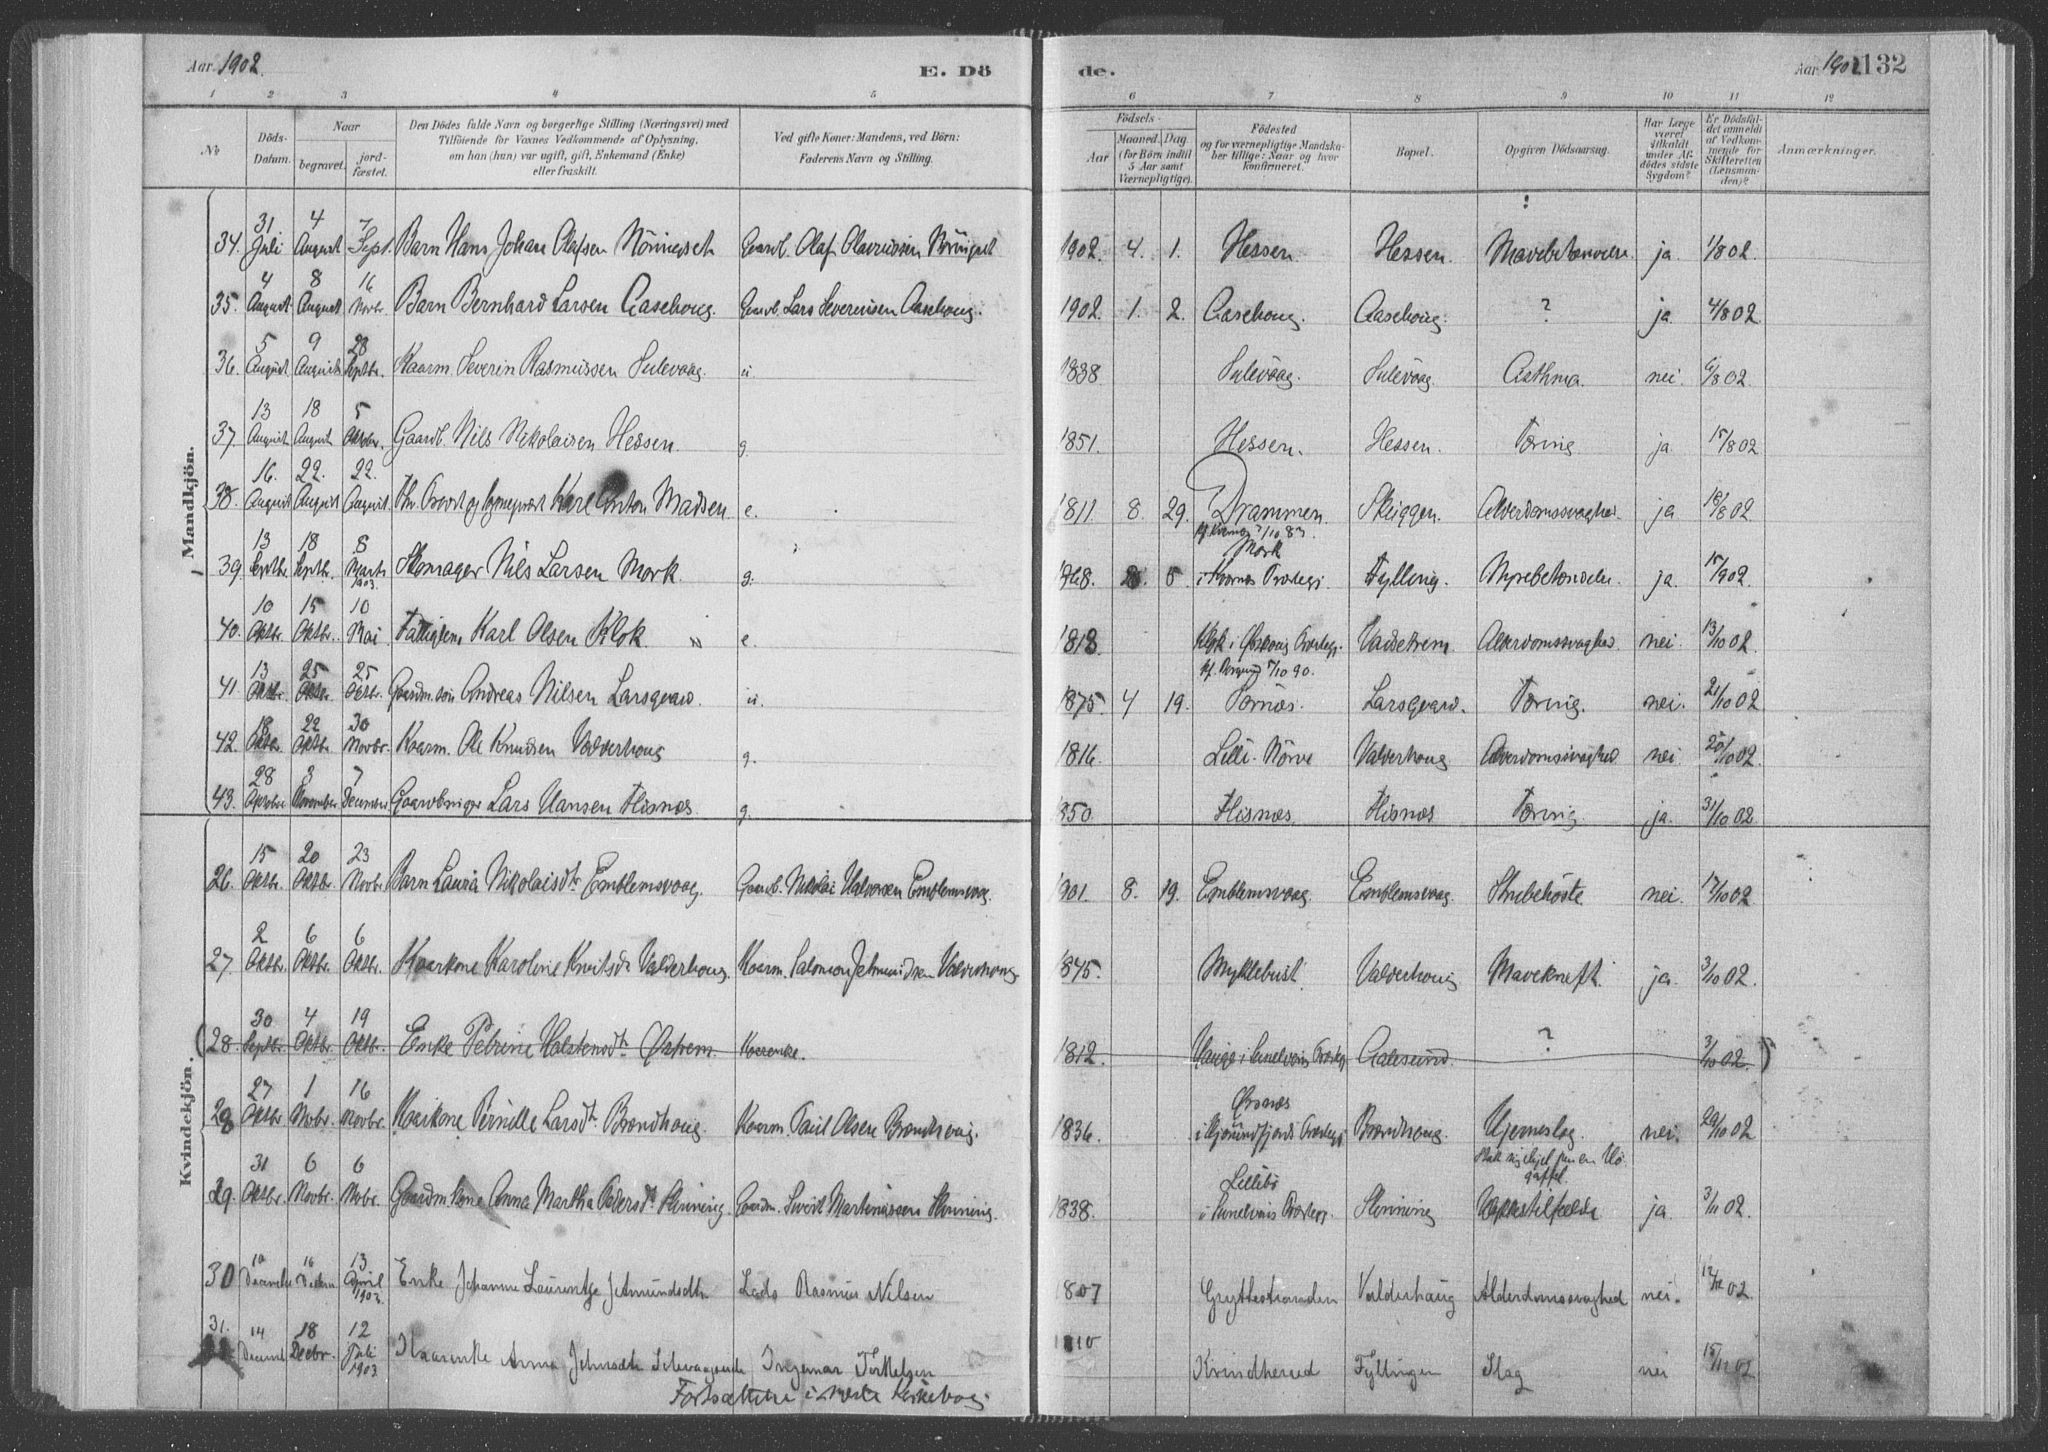 Aar. 1902. E. Dö
de. Aar 1902 132
1 2 3 4 5 6 7 8 9 10 11 12
№ Döds-Datum. Naar begravet. jordfæstet. Den Dödes fulde Navn og borgerlige Stilling (Næringsvei) med Tilföiende for Voxnes Vedkommende af Oplysning, om han (hun) var ugift, gift, Enkemand (Enke) eller fraskilt. Ved gifte Koner: Mandens, ved Börn: Faderens Navn og Stilling. Födsels- Aar Maaned Dag (for Börn indtil 5 Aar samt Værnepligtige). Födested og for værnepligtige Mandskaber tillige: Naar og hvor konfirmeret. Bopæl. Opgiven Dödsaarsag. Har Læge været tilkaldt under Afdödes sidste Sygdom? Er Dödsfaldet anmeldt af Vedkommende for Skifteretten (Lensmanden)? Anmærkninger.
Mandkjön.
34. 31 Juli 4 August 7 Sept. Barn Hans Johan Olafsen Nörvegset Gaardb. Olaf 1902. 4. 1. Hessen. Hessen. Mavebetændelse ja. 1/8 02.
35. 4 August 8 August 16 Novbr. Barn Bernhard Larsen Aasehoug. Gaardb. Lars Severinsen Aasehoug. 1902. 1. 2. Aasehoug. Aasehoug. ? ja 4/8 02
36. 5 August 9 August 28 Septbr. Kaarm. Severin Rasmussen Sulevaag. u. 1838 Sulevaag. Sulevaag. Asthma. nei. 6/8 02.
37. 13 August 18 August 5 Oktober. Gaardb. Nils Nikolaisen Hessen. g. 1851. Hessen. Hessen. Tæring ja. 15/8 02
38. 16. August 22. August 22. August Karl Anton Madsen e. 1811. 8. 29. Drammen. Skuggen. Alderdomssvaghed. ja 18/8 02.
39. 13 Septbr. 18 Septbr. 8 Marts 1903. Skomager Nils Larsen Mork. g. 1868. 5 Mork i Prestegj. Fylling. Nyrebetændelse ja. 15/9 02.
40. 10 Oktbr. 15 Oktbr. 10 Mai Karl Olsen Klok. e. 1818. Klok i Prestegj. Vadstrem Alderdomssvaghed nei. 13/10 02.
41. 13 Oktbr. 25 Oktbr. 25 Octbr. Gaardm.søn Andreas Nilsen Larsgaard. u. 1875. 4 19. Larsgaard. Tæring. nei. 21/10 02
42. 18 Oktbr. 22 Oktbr. 30 Novbr. Kaarm. Ole Knudsen Valderhoug g. 1816. Lille-Nörve Valderhoug Alderdomssvaghed nei. 20/10 02.
43. 28 Oktober 3 November 7 December Gaardbruger Lars Hansen Flisnæs. g. 1850 Flisnæs. Flisnæs Tæring. ja. 31/10 02
Kvindekjön.
26. 15 Oktbr. 20 Oktbr. 23 Novbr. Barn Laura Nikolaisdtr. Emblemsvaag. Gaardb. Nikolai Halvorsen Emblemsvaag. 1901. 8. 19. Emblemsvaag. Emblemsvaag. Strubehoste nei. 17/10 02
27. 2 Oktbr. 6 Oktbr. 6 Oktbr. Kaarkone Karoline Knutsdr. Valderhoug. Kaarm. Salomon Jetmundsen Valderhoug 1845. Myklebust. Valderhoug Mavekræft. ja. 3/10 02.
(28. 30 Septbr. 4 Oktbr. 19 Oktbr. Enke Petrine Halstensdtr. Østrem. Kaarenke. 1812. Hauge i Sunelvens Prestegj. Aalesund. ? 3/10 02.)
28. 27 Oktbr. 1 Novbr. 16 Novbr. Kaarkone Pernille Larsdtr. Brandhoug. Kaarm. Paul Olsen Brandhoug. 1836. Ørsnæs i Hjörundfjords Prestegj. Brandhoug. Hjerneslag. nei. 29/10 02
29. 31 Oktbr. 6 Novbr. 6 Novbr. Gaardm.kone Anna Martha Pedersdtr. Slinning. Gaardm. Sivert Martinussen Slinning. 1838. Lillebö i Sunelvens Prestegj. Slinning gaffel. Ulykkestilfælde ja. 3/11 02.
30 10 December 16 Decbr. 13 April 1903. Enke Johanne Laurentze Jetmundsdtr. Lods Rasmus Nilsen 1807 Gryttestranden Valderhaug Alderdomssvaghed nei. 12/12 02
31. 14 Decembr 18 Decbr. 12 Juli 1903 Kaarenke Anna Ingemar Torkelsen 1810 Kvindherred Fyllingen Slag nei 15/12 02
Fortsættes i næste Kirkebog.